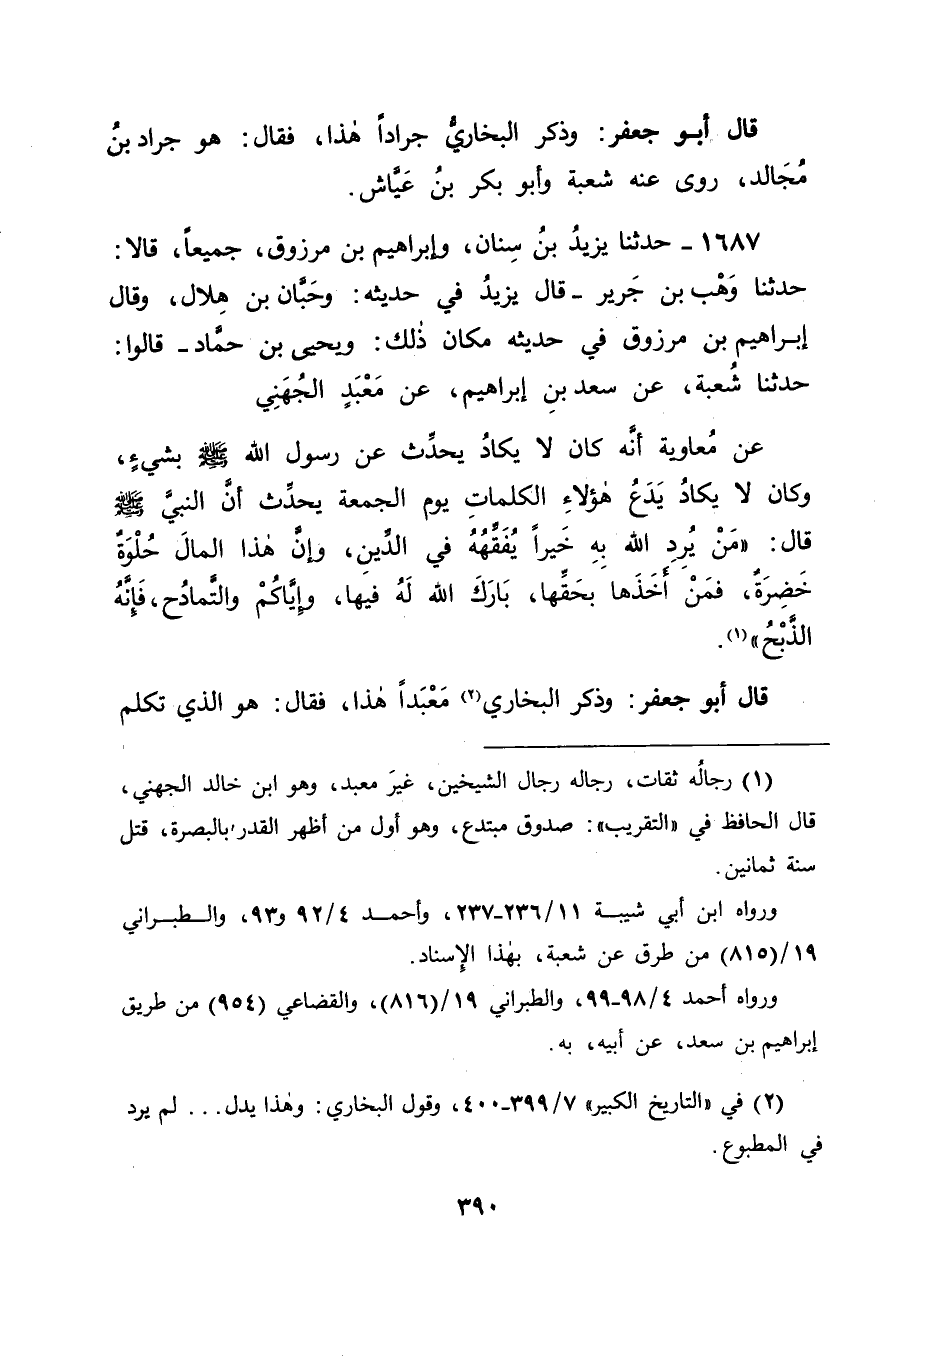 قال أبو جعفر: وذكر البخاريُّ جراداً هٰذا، فقال: هو جراد بنُ
مُجَالد، روى عنه شعبة وأبو بكر بنُ عَيَّاش.
١٦٨٧ - حدثنا يزيدُ بنُ سِنان، وإبراهيم بن مرزوق، جميعاً، قالا:
حدثنا وَهْب بن جَرير - قال يزيدُ في حديثه: وحَبَّان بن هِلال، وقال
إبراهيم بن مرزوق في حديثه مكان ذٰلك: ويحيى بن حمَّاد - قالوا:
حدثنا شُعبة، عن سعد بنِ إبراهيم، عن مَعْبَدٍ الجُهَنِي
عن مُعاوية أنَّه كان لا يكادُ يحدِّث عن رسول الله ﷺ بشيءٍ،
وكان لا يكادُ يَدَعُ هٰؤلاءِ الكلماتِ يوم الجمعة يحدِّث أنَّ النبيَّ ﷺ
قال: «مَنْ يُرِدِ الله بِهِ خَيراً يُفَقِّهْهُ في الدِّينِ، وإنَّ هٰذا المالَ حُلْوَةٌ
خَضِرَةٌ، فمَنْ أَخَذَها بحَقِّها، بَارَكَ الله لَهُ فيها، وإيَّاكُمْ والتَّمادُح، فَإنَّهُ
الذَّبْحُ»(١).
قال أبو جعفر: وذكر البخاري(٢) مَعْبَداً هٰذا، فقال: هو الذي تكلم
(١) رجالُه ثقات، رجاله رجال الشيخين، غيرَ معبد، وهو ابن خالد الجهني،
قال الحافظ في «التقريب»: صدوق مبتدع، وهو أول من أظهر القدر بالبصرة، قتل
سنة ثمانين.
ورواه ابن أبي شيبة ١١/٢٣٦-٢٣٧، وأحمد ٤/٩٢ و٩٣، والطبراني
١٩/(٨١٥) من طرق عن شعبة، بهٰذا الإسناد.
ورواه أحمد ٤/٩٨-٩٩، والطبراني ١٩/(٨١٦)، والقضاعي (٩٥٤) من طريق
إبراهيم بن سعد، عن أبيه، به.
(٢) في «التاريخ الكبير» ٧/٣٩٩-٤٠٠، وقول البخاري: وهٰذا يدل... لم يرد
في المطبوع.
٣٩٠